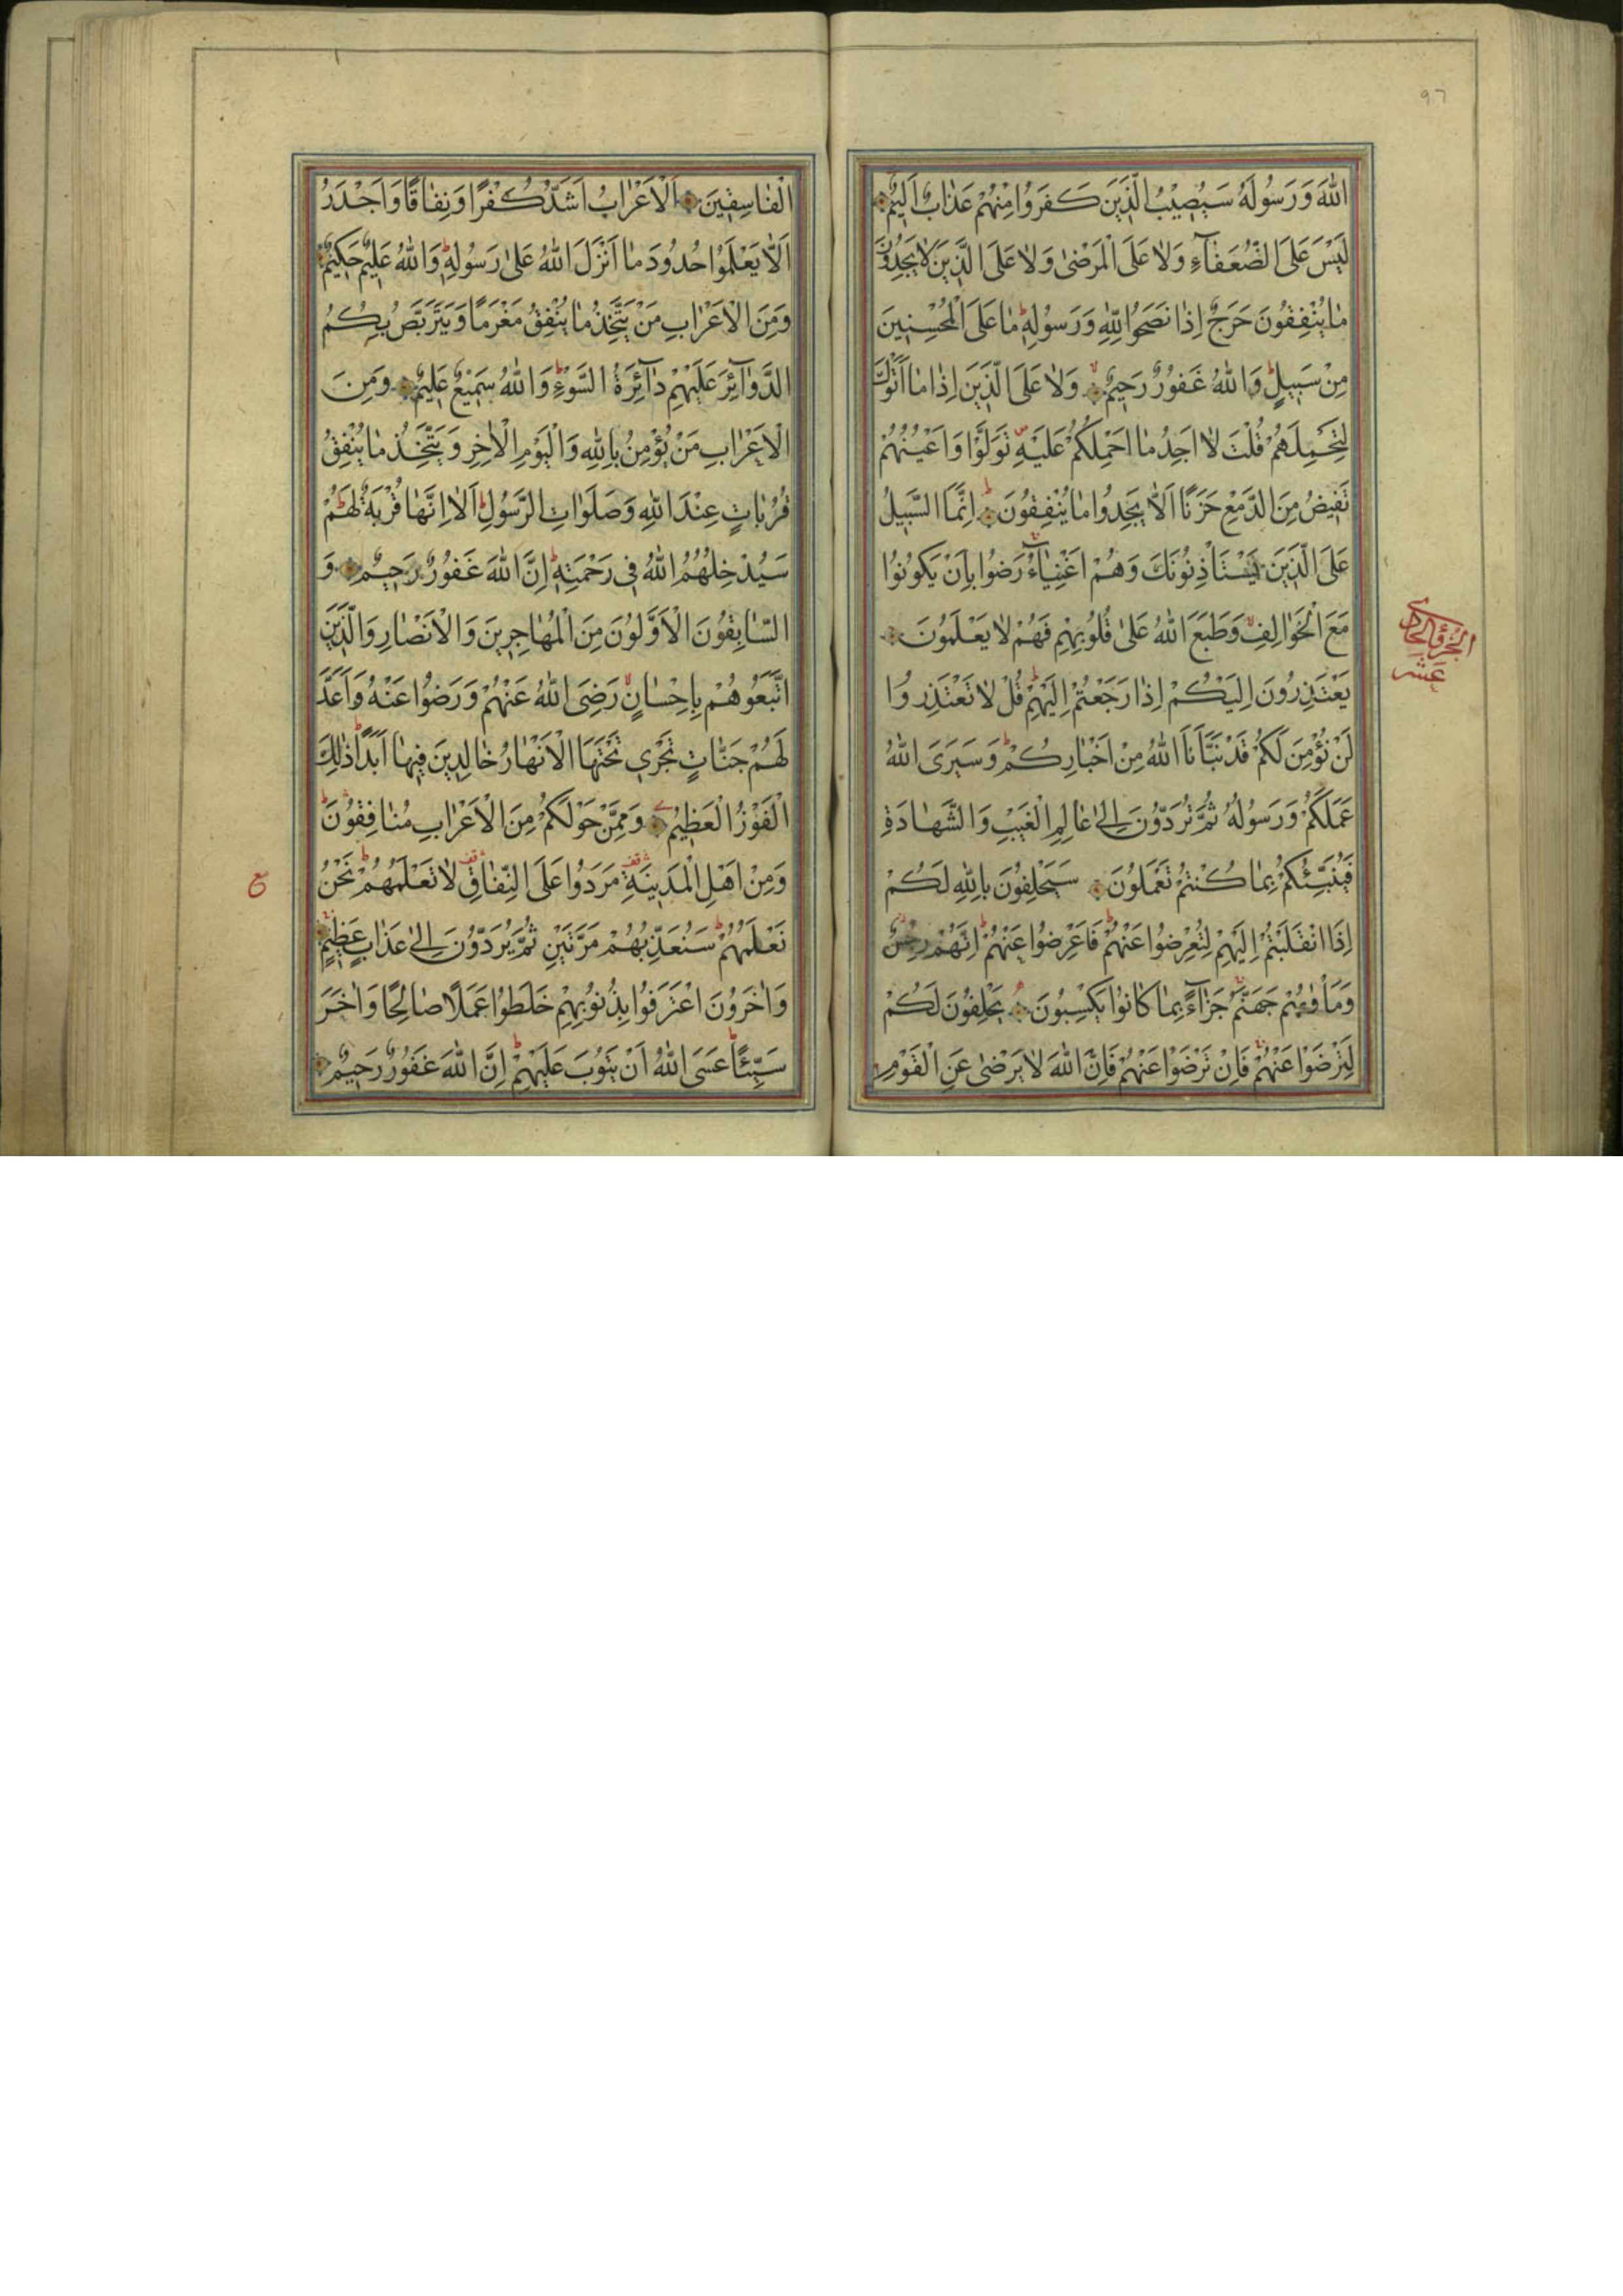 ٩٦
اللّٰهَ وَرَسُولَهُ سَيُصِيْبُ الَّذِينَ كَفَرُوا مِنْهُمْ عَذَابٌ اَلِيمٌ
لَيْسَ عَلَى الضُّعَفَآءِ وَلَا عَلَى الْمَرْضٰى وَلَا عَلَى الَّذِينَ لَا يَجِدُونَ
مَا يُنْفِقُونَ حَرَجٌ اِذَا نَصَحُوا لِلّٰهِ وَرَسُولِهِ ط مَا عَلَى الْمُحْسِنِينَ
مِنْ سَبِيلٍ ط وَاللّٰهُ غَفُورٌ رَحِيمٌ وَلَا عَلَى الَّذِينَ اِذَا مَا اَتَوْكَ
لِتَحْمِلَهُمْ قُلْتَ لَا اَجِدُ مَا اَحْمِلُكُمْ عَلَيْهِ تَوَلَّوْا وَاَعْيُنُهُمْ
تَفِيضُ مِنَ الدَّمْعِ حَزَنًا اَلَّا يَجِدُوا مَا يُنْفِقُونَ ط اِنَّمَا السَّبِيلُ
عَلَى الَّذِينَ يَسْتَاْذِنُونَكَ وَهُمْ اَغْنِيَآءُ رَضُوا بِاَنْ يَكُونُوا
مَعَ الْخَوَالِفِ وَطَبَعَ اللّٰهُ عَلٰى قُلُوبِهِمْ فَهُمْ لَا يَعْلَمُونَ
الجزؤ الحادى
عشر
يَعْتَذِرُونَ اِلَيْكُمْ اِذَا رَجَعْتُمْ اِلَيْهِمْ ط قُلْ لَا تَعْتَذِرُوا
لَنْ نُؤْمِنَ لَكُمْ قَدْ نَبَّاَنَا اللّٰهُ مِنْ اَخْبَارِكُمْ ط وَسَيَرَى اللّٰهُ
عَمَلَكُمْ وَرَسُولُهُ ثُمَّ تُرَدُّونَ اِلٰى عَالِمِ الْغَيْبِ وَالشَّهَادَةِ
فَيُنَبِّئُكُمْ بِمَا كُنْتُمْ تَعْمَلُونَ سَيَحْلِفُونَ بِاللّٰهِ لَكُمْ
اِذَا انْقَلَبْتُمْ اِلَيْهِمْ لِتُعْرِضُوا عَنْهُمْ ط فَاَعْرِضُوا عَنْهُمْ ط اِنَّهُمْ رِجْسٌ
وَمَاْوٰيهُمْ جَهَنَّمُ جَزَآءً بِمَا كَانُوا يَكْسِبُونَ يَحْلِفُونَ لَكُمْ
لِتَرْضَوْا عَنْهُمْ فَاِنْ تَرْضَوْا عَنْهُمْ فَاِنَّ اللّٰهَ لَا يَرْضٰى عَنِ الْقَوْمِ
الْفَاسِقِينَ اَلْاَعْرَابُ اَشَدُّ كُفْرًا وَنِفَاقًا وَاَجْدَرُ
اَلَّا يَعْلَمُوا حُدُودَ مَا اَنْزَلَ اللّٰهُ عَلٰى رَسُولِهِ ط وَاللّٰهُ عَلِيمٌ حَكِيمٌ
وَمِنَ الْاَعْرَابِ مَنْ يَتَّخِذُ مَا يُنْفِقُ مَغْرَمًا وَيَتَرَبَّصُ بِكُمُ
الدَّوَآئِرَ عَلَيْهِمْ دَآئِرَةُ السَّوْءِ ط وَاللّٰهُ سَمِيعٌ عَلِيمٌ وَمِنَ
الْاَعْرَابِ مَنْ يُؤْمِنُ بِاللّٰهِ وَالْيَوْمِ الْاٰخِرِ وَيَتَّخِذُ مَا يُنْفِقُ
قُرُبَاتٍ عِنْدَ اللّٰهِ وَصَلَوَاتِ الرَّسُولِ ط اَلَا اِنَّهَا قُرْبَةٌ لَهُمْ ط
سَيُدْخِلُهُمُ اللّٰهُ فِى رَحْمَتِهِ ط اِنَّ اللّٰهَ غَفُورٌ رَحِيمٌ وَ
السَّابِقُونَ الْاَوَّلُونَ مِنَ الْمُهَاجِرِينَ وَالْاَنْصَارِ وَالَّذِينَ
اتَّبَعُوهُمْ بِاِحْسَانٍ رَضِىَ اللّٰهُ عَنْهُمْ وَرَضُوا عَنْهُ وَاَعَدَّ
لَهُمْ جَنَّاتٍ تَجْرِى تَحْتَهَا الْاَنْهَارُ خَالِدِينَ فِيهَا اَبَدًا ط ذٰلِكَ
الْفَوْزُ الْعَظِيمُ وَمِمَّنْ حَوْلَكُمْ مِنَ الْاَعْرَابِ مُنَافِقُونَ ط
وَمِنْ اَهْلِ الْمَدِينَةِ قف مَرَدُوا عَلَى النِّفَاقِ قف لَا تَعْلَمُهُمْ ط نَحْنُ
ع
نَعْلَمُهُمْ ط سَنُعَذِّبُهُمْ مَرَّتَيْنِ ثُمَّ يُرَدُّونَ اِلٰى عَذَابٍ عَظِيمٍ
وَاٰخَرُونَ اعْتَرَفُوا بِذُنُوبِهِمْ خَلَطُوا عَمَلًا صَالِحًا وَاٰخَرَ
سَيِّئًا ط عَسَى اللّٰهُ اَنْ يَتُوبَ عَلَيْهِمْ ط اِنَّ اللّٰهَ غَفُورٌ رَحِيمٌ